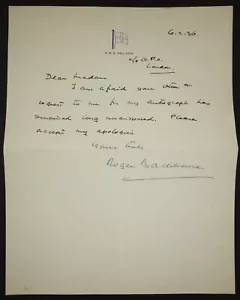 H.M.S. NELSON
c/o G.P.O.
London.
6.2.36.
Dear Madam
I am afraid your letter
request to me for my autograph has
remained long unanswered. Please
accept my apologies
Yours truly
Roger Backhouse